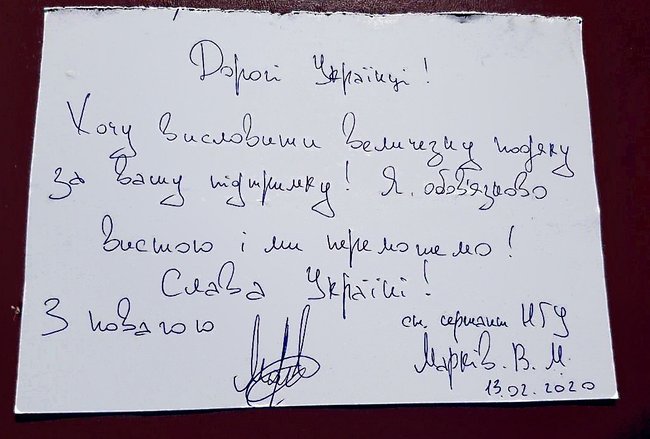 Дорогі Українці!
Хочу висловити величезну подяку
за вашу підтримку! Я обов'язково
вистою і ми переможемо!
Слава Україні!
З повагою
ст. сержант НГУ
Марків. В. М.
13.02.2020